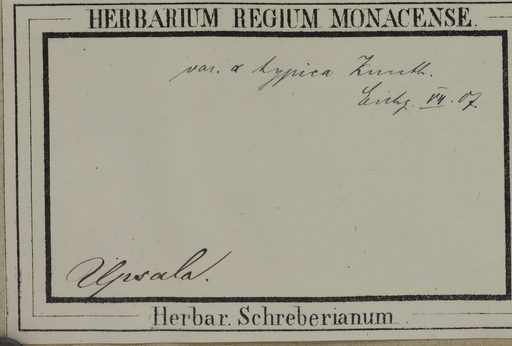 HERBARIUM REGIUM MONACENSE.
var. α typica Knuth.
Eichg. VII. 07
Upsala.
Herbar. Schreberianum